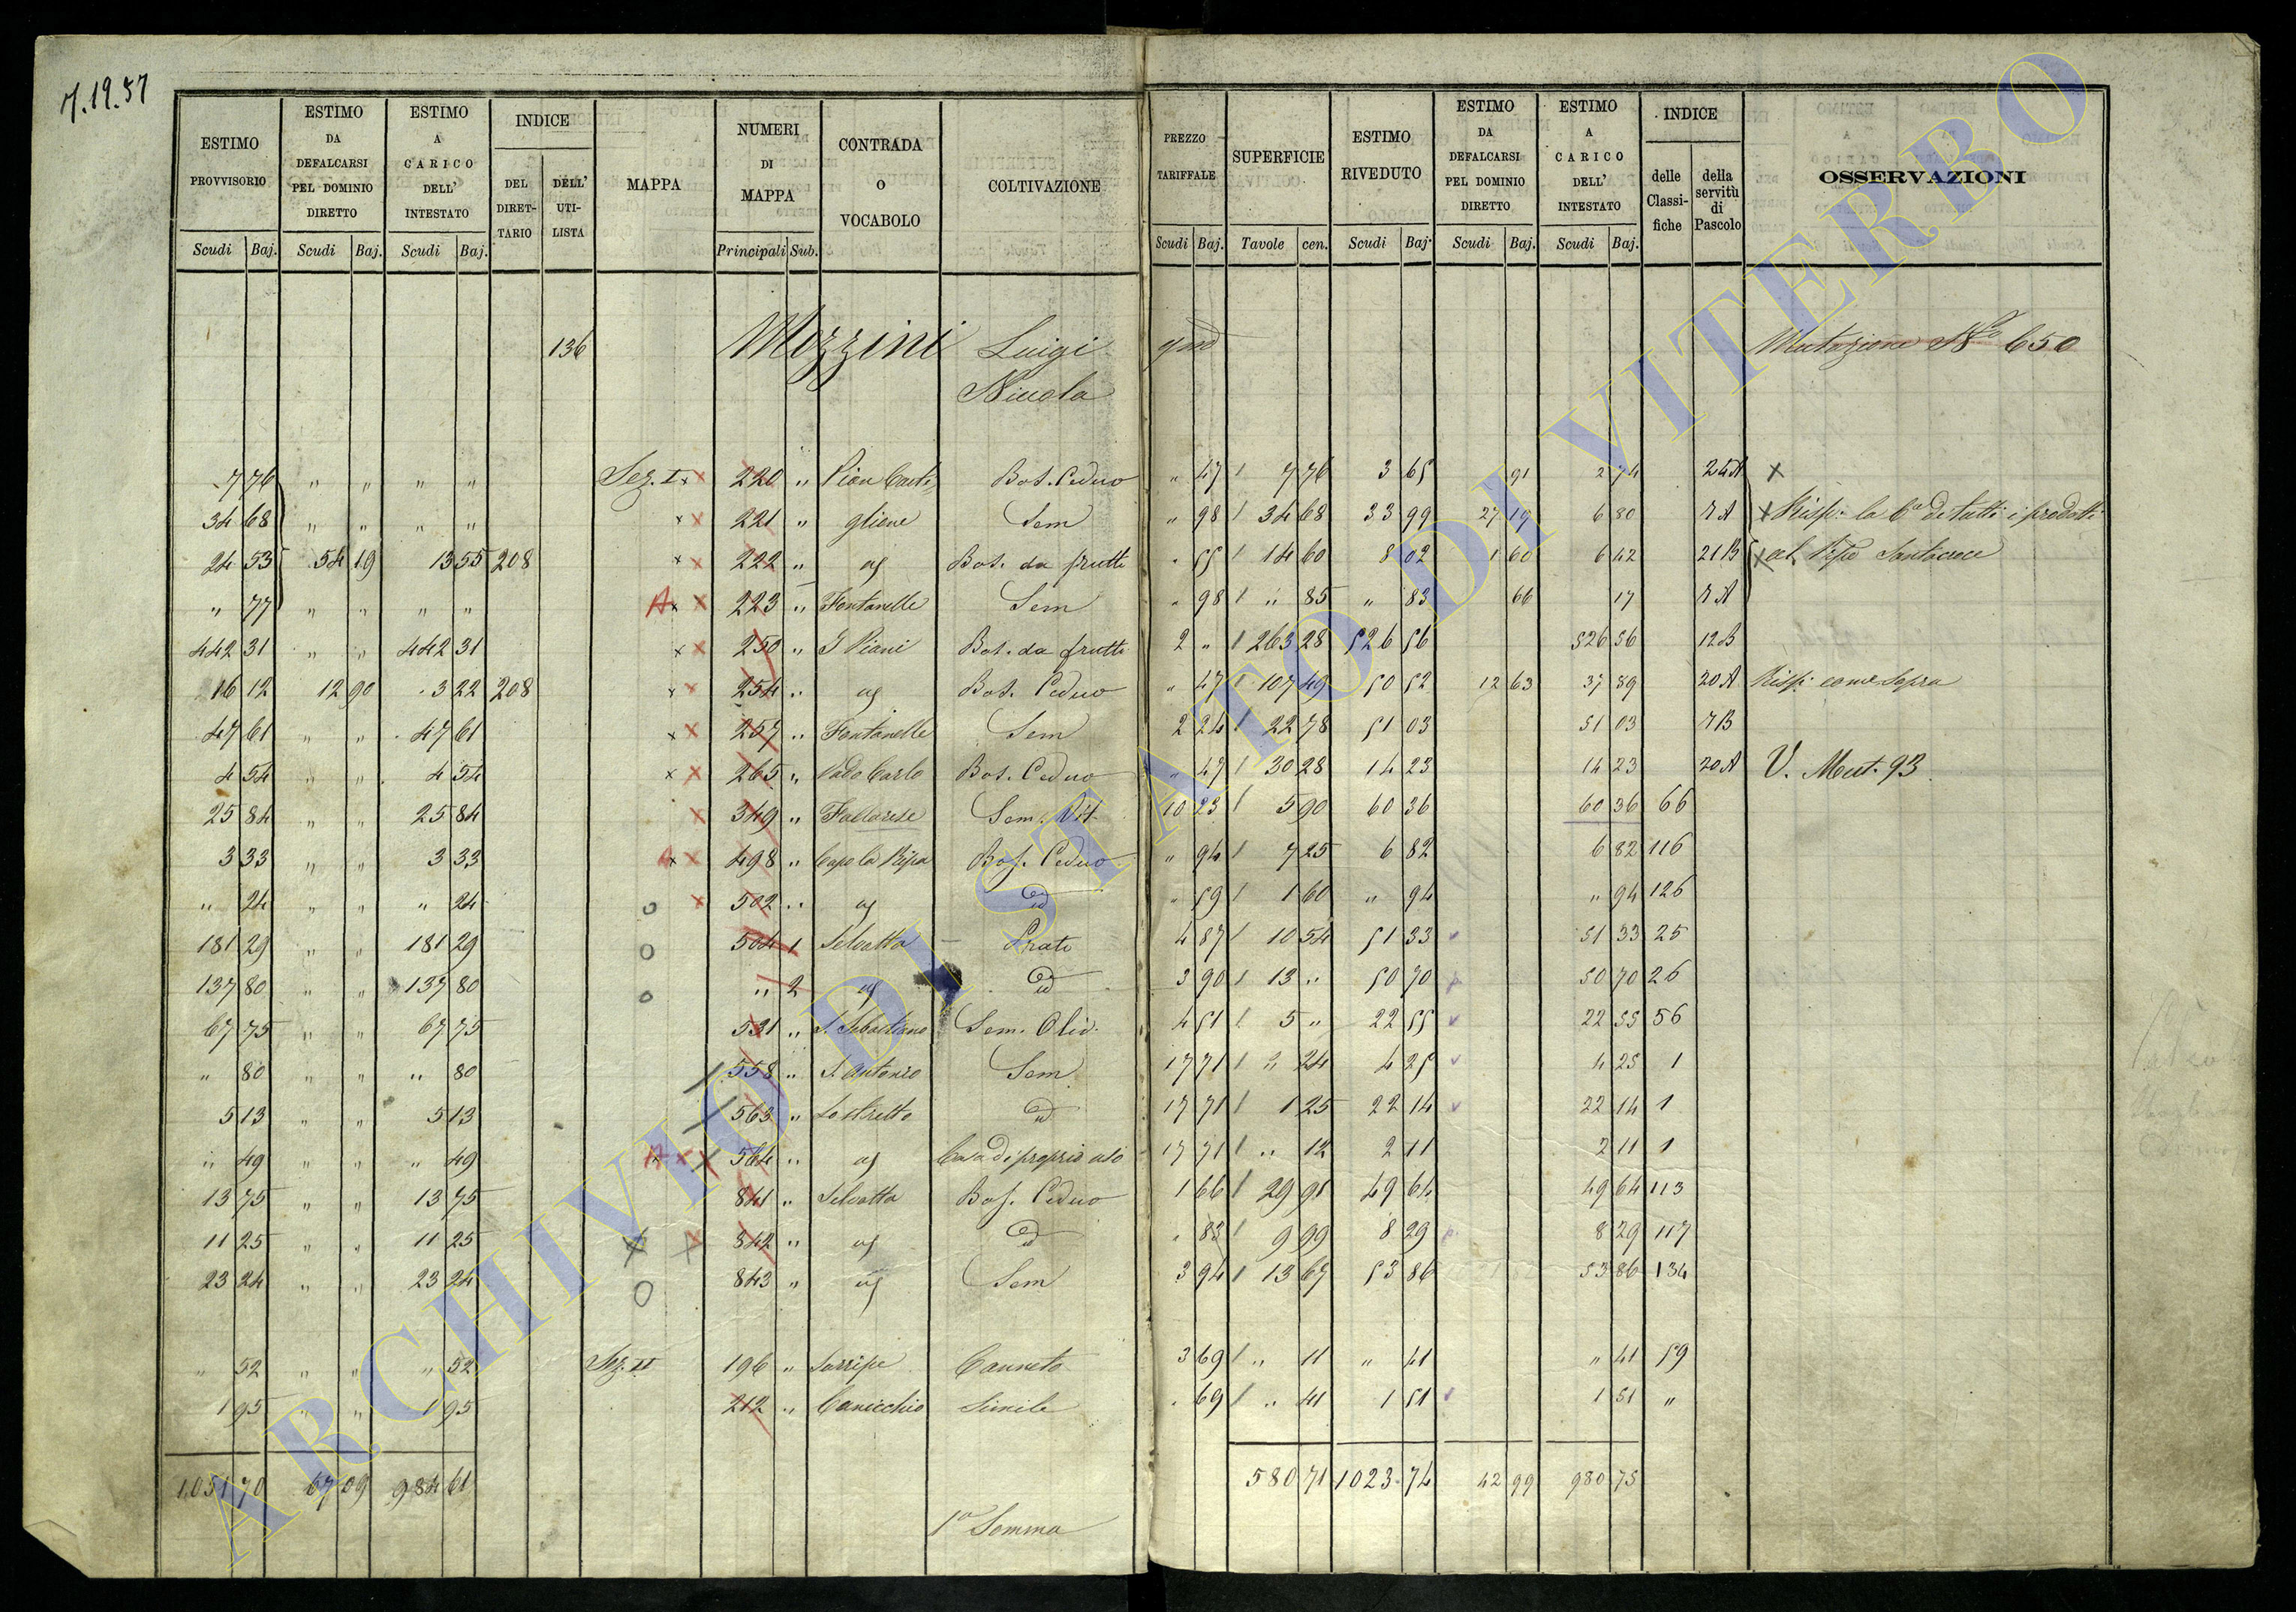 7.19.57
ESTIMO PROVVISORIO | ESTIMO DA DEFALCARSI PEL DOMINIO DIRETTO | ESTIMO A CARICO DELL' INTESTATO | INDICE DEL DIRETTARIO | DELL' UTILISTA | MAPPA | NUMERI DI MAPPA | CONTRADA O VOCABOLO | COLTIVAZIONE | PREZZO TARIFFALE | SUPERFICIE | ESTIMO RIVEDUTO | ESTIMO DA DEFALCARSI PEL DOMINIO DIRETTO | ESTIMO A CARICO DELL' INTESTATO | INDICE delle Classifiche | della servitù di Pascolo | OSSERVAZIONI
Scudi Baj. Scudi Baj. Scudi Baj. Principali Sub. Scudi Baj. Tavole cen. Scudi Baj. Scudi Baj. Scudi Baj.
136 Mozzini Luigi qnd Mutazione No 650
Nicola
7 76 " " " " Sez. I x x 220 " Bos. Ceduo " 47 7 76 3 65 91 2 74 24A x
34 68 " " " " x x 221 " glione Sem " 98 34 68 33 99 27 19 6 80 7A x Risp. la 6a di tutti i prodotti
24 53 54 19 13 55 208 x x 222 " Bos. da frutti " 55 14 60 8 02 1 60 6 42 21B x al Santacroce
" 77 " " " " A x x 223 " Fontanelle Sem " 98 " 85 " 83 66 17 7A
442 31 " " 442 31 x x 250 " I Piani Bos. da frutti 2 " 263 28 526 56 526 56 12B
16 12 12 90 3 22 208 x x 254 " Bos. Ceduo " 47 107 49 50 52 12 63 37 89 20A Risp. come Sopra
47 61 " " 47 61 x x 257 " Fontanelle Sem 2 24 22 78 51 03 51 03 7B
4 54 " " 4 54 x x 265 " Vado Carlo Bos. Ceduo " 47 30 28 14 23 14 23 20A V. Mut. 93
25 84 " " 25 84 x 349 " Sem. Vit. 10 23 5 90 60 36 60 36 66
3 33 " " 3 33 A x x 498 " Capo la Ripa Bos. Ceduo " 94 7 25 6 82 6 82 116
" 24 " " " 24 o x 502 " id " 59 1 60 " 94 " 94 126
181 29 " " 181 29 o 504 1 Selvotta Prato 4 87 10 54 51 33 51 33 25
137 80 " " 137 80 o " 2 id 3 90 13 " 50 70 50 70 26
67 75 " " 67 75 531 " S. Sebastiano Sem. Oliv. 4 51 5 " 22 55 22 55 56
" 80 " " " 80 558 " S. Antonio Sem 17 71 " 24 4 25 4 25 1
5 13 " " 5 13 563 " Lostretto id 17 71 1 25 22 14 22 14 1
" 49 " " " 49 A x x 564 " Casa di proprio uso 17 71 " 12 2 11 2 11 1
13 75 " " 13 75 841 " Selvotta Bos. Ceduo 1 66 29 91 49 64 49 64 113
11 25 " " 11 25 x x 842 " id " 83 9 99 8 29 8 29 117
23 24 " " 23 24 o 843 " Sem 3 94 13 67 53 86 53 86 134
" 52 " " " 52 Sez. II 196 " Sorripe Canneto 3 69 " 11 " 41 " 41 59
1 95 " " 1 95 212 " Canicchio Simile " 69 " 41 1 51 1 51 "
1,051 70 67 09 984 61 580 71 1023 74 42 99 980 75
1a Somma
ARCHIVIO DI STATO DI VITERBO